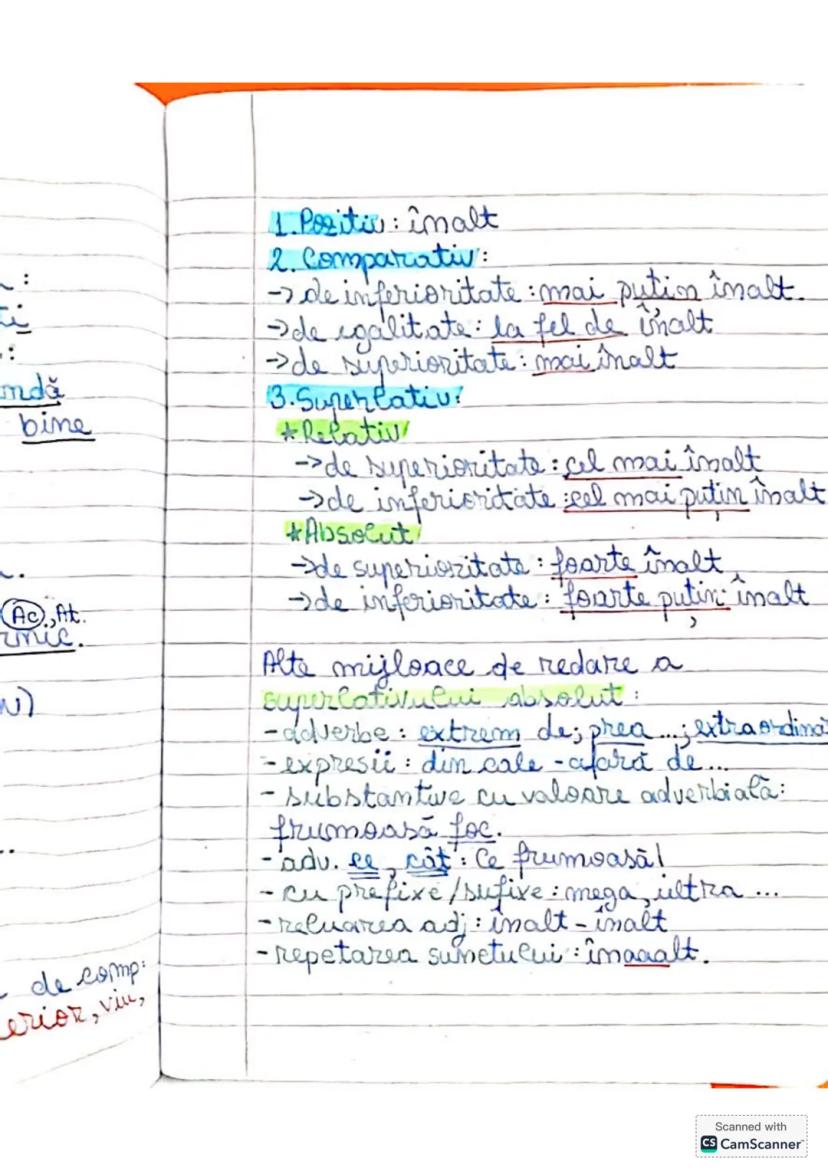 :
ti
:
ndă
bine
Ac., At.
rmic.
de comp:
erior, viu,
1. Pozitiv: înalt
2. Comparativ:
-> de inferioritate: mai puțin înalt.
-> de egalitate: la fel de înalt
-> de superioritate: mai înalt
3. Superlativ:
*Relativ
-> de superioritate: cel mai înalt
-> de inferioritate: cel mai puțin înalt
*Absolut
-> de superioritate: foarte înalt
-> de inferioritate: foarte puțin înalt
Alte mijloace de redare a
superlativului absolut:
- adverbe: extrem de; prea ...; extraordina
- expresii: din cale-afară de...
- substantive cu valoare adverbială:
frumoasă foc.
- adv. ce, cât: Ce frumoasă!
- cu prefixe/sufixe: mega, ultra ...
- reluarea adj: înalt-înalt
- repetarea sunetului: înaaalt.
Scanned with
CS CamScanner